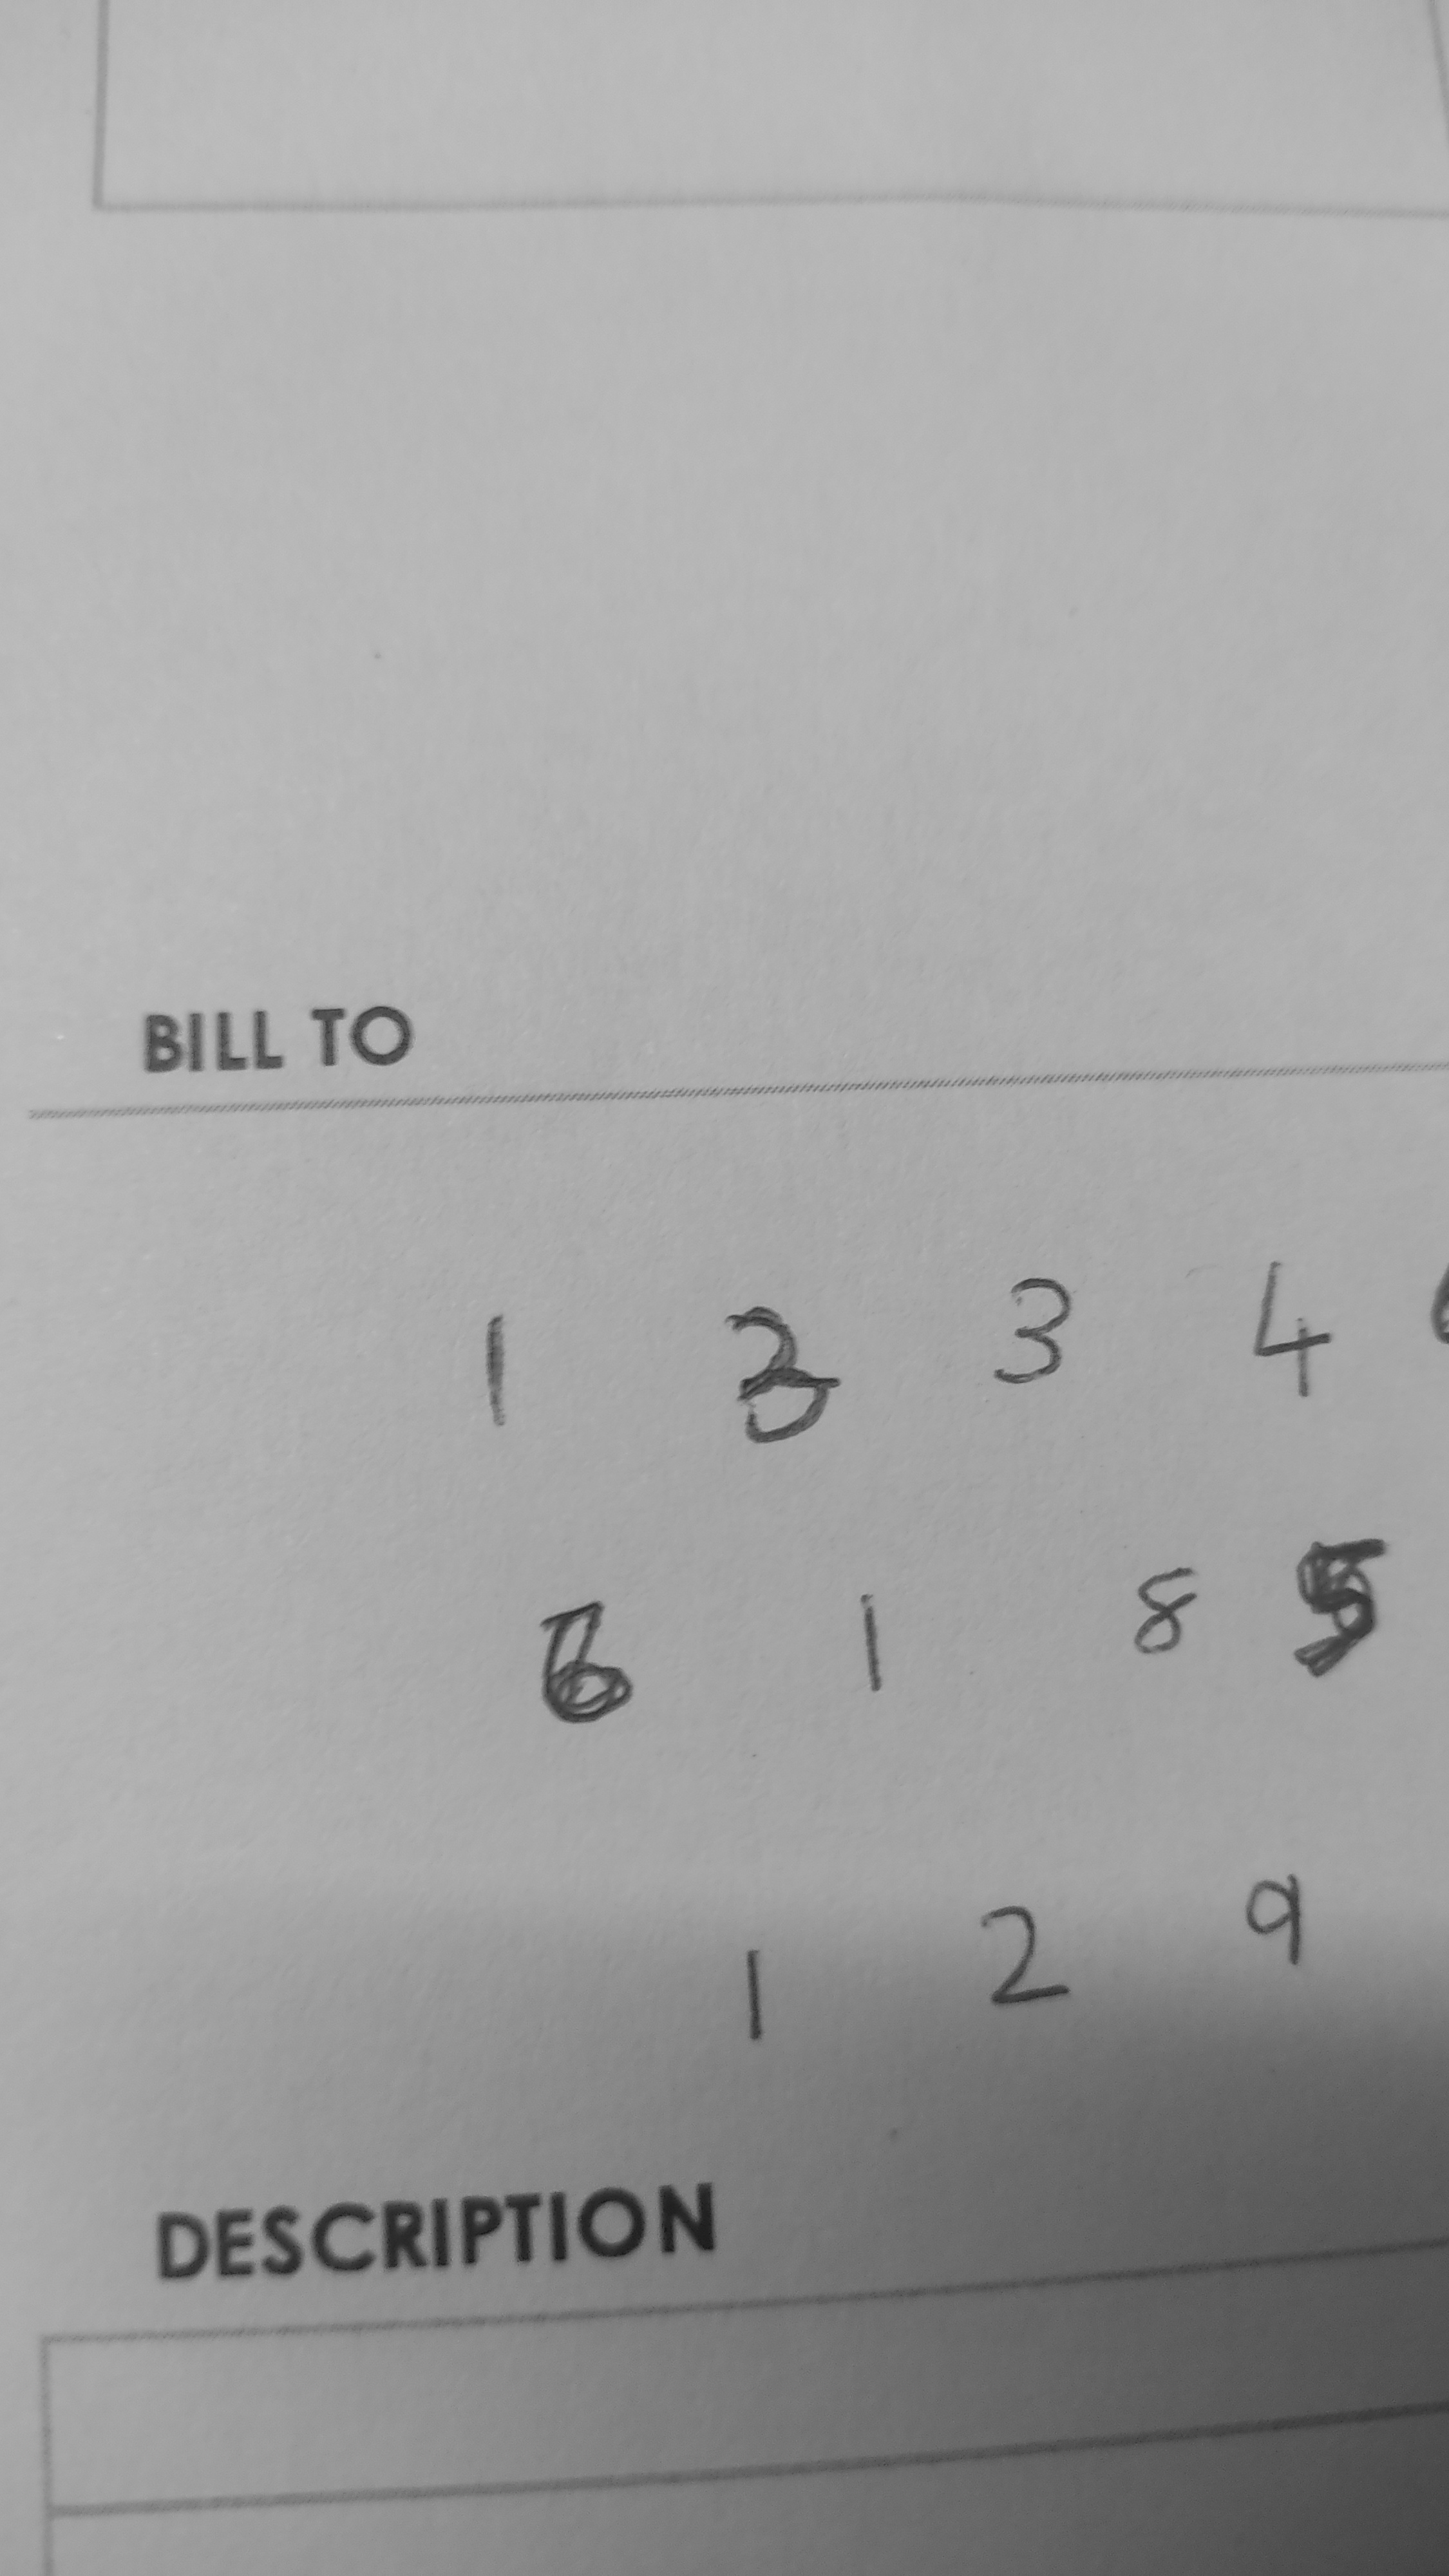 BILL TO
1 3 4
1 8 5
1 2 9
DESCRIPTION